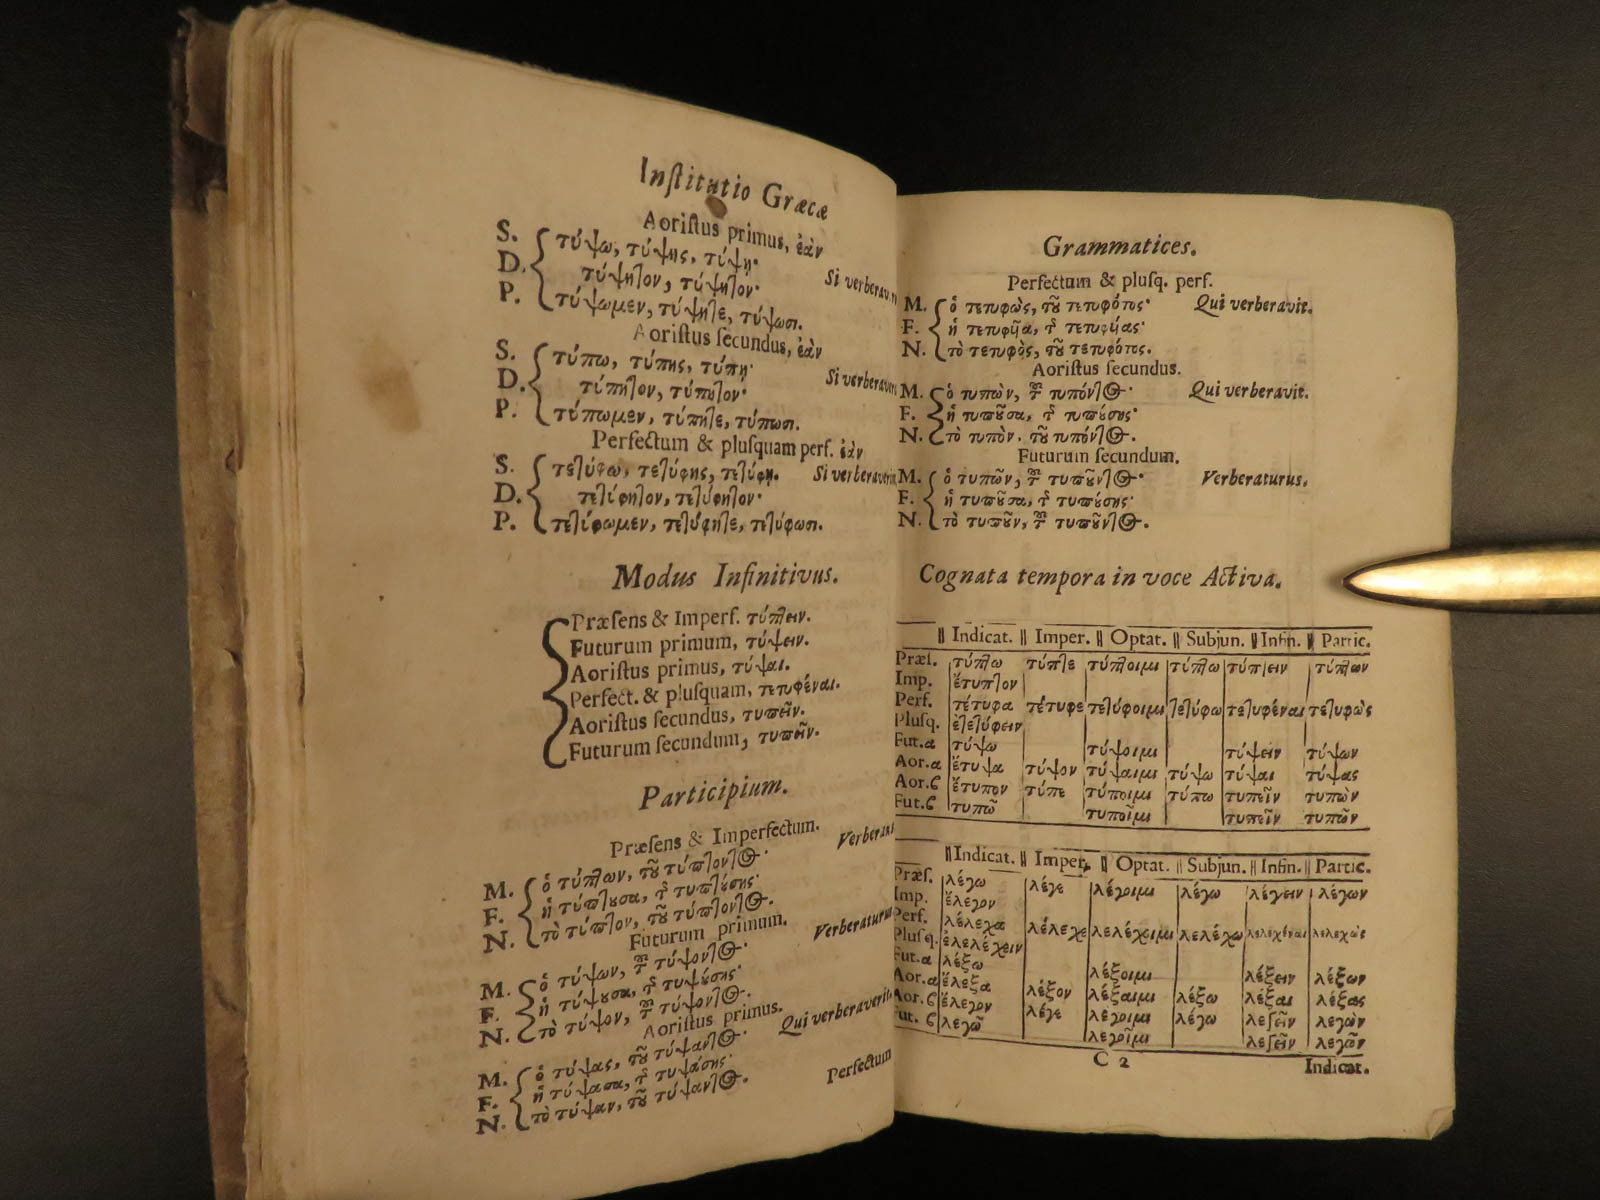 Inſtitutio Græcæ
Aoriſtus primus, ἐὰν
S. τύψω, τύψης, τύψη·
D. τύψητον, τύψητον· Si verberav
P. τύψωμεν, τύψητε, τύψωσι.
Aoriſtus ſecundus, ἐὰν
S. τύπω, τύπης, τύπη·
D. τύπητον, τύπητον· Si verberav
P. τύπωμεν, τύπητε, τύπωσι.
Perfectum & pluſquam perf. ἐὰν
S. τετύφω, τετύφης, τετύφη. Si verberaverim
D. τετύφητον, τετύφητον·
P. τετύφωμεν, τετύφητε, τετύφωσι.
Modus Infinitivus.
Præſens & Imperf. τύπτειν.
Futurum primum, τύψειν.
Aoriſtus primus, τύψαι.
Perfect. & pluſquam, τετυφέναι.
Aoriſtus ſecundus, τυπεῖν.
Futurum ſecundum, τυπεῖν.
Participium.
Præſens & Imperfectum.
M. ὁ τύπτων, τοῦ τύπτοντος· Verberans
F. ἡ τύπτουσα, τῆς τυπτούσης·
N. τὸ τύπτον, τοῦ τύπτοντος.
Futurum primum.
M. ὁ τύψων, τοῦ τύψοντος· Verberaturus
F. ἡ τύψουσα, τῆς τυψούσης·
N. τὸ τύψον, τοῦ τύψοντος.
Aoriſtus primus.
M. ὁ τύψας, τοῦ τύψαντος· Qui verberaverit
F. ἡ τύψασα, τῆς τυψάσης·
N. τὸ τύψαν, τοῦ τύψαντος.
Perfectum
Grammatices.
Perfectum & pluſq. perf.
M. ὁ τετυφὼς, τοῦ τετυφότος· Qui verberavit.
F. ἡ τετυφῦα, τῆς τετυφύας·
N. τὸ τετυφὸς, τοῦ τετυφότος.
Aoriſtus ſecundus.
M. ὁ τυπὼν, τοῦ τυπόντος· Qui verberavit.
F. ἡ τυποῦσα, τῆς τυπούσης·
N. τὸ τυπὸν. τοῦ τυπόντος.
Futurum ſecundum.
M. ὁ τυπῶν, τοῦ τυποῦντος· Verberaturus.
F. ἡ τυποῦσα, τῆς τυπούσης·
N. τὸ τυποῦν, τοῦ τυποῦντος.
Cognata tempora in voce Activa.
Indicat. Imper. Optat. Subjun. Infin. Partic.
Præſ. τύπτω τύπτε τύπτοιμι τύπτω τύπτειν τύπτων
Imp. ἔτυπτον
Perf. τέτυφα τέτυφε τετύφοιμι τετύφω τετυφέναι τετυφὼς
Pluſq. ἐτετύφειν
Fut.α τύψω τύψοιμι τύψειν τύψων
Aor.α ἔτυψα τύψον τύψαιμι τύψω τύψαι τύψας
Aor.ϐ ἔτυπον τύπε τύποιμι τύπω τυπεῖν τυπὼν
Fut.ϐ τυπῶ τυποῖμι τυπεῖν τυπῶν
Indicat. Imper. Optat. Subjun. Infin. Partic.
Præſ. λέγω λέγε λέγοιμι λέγω λέγειν λέγων
Imp. ἔλεγον
Perf. λέλεχα λέλεχε λελέχοιμι λελέχω λελεχέναι λελεχὼς
Pluſq. ἐλελέχειν
Fut.α λέξω λέξοιμι λέξειν λέξων
Aor.α ἔλεξα λέξον λέξαιμι λέξω λέξαι λέξας
Aor.ϐ ἔλεγον λέγε λέγοιμι λέγω λεγεῖν λεγὼν
Fut.ϐ λεγῶ λεγοῖμι λεγεῖν λεγῶν
C 2
Indicat.